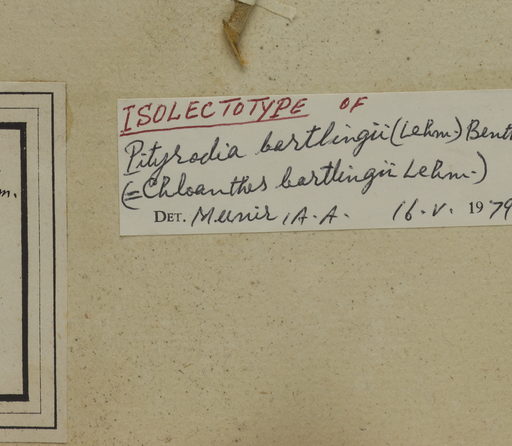 ISOLECTOTYPE OF
Pityrodia bartlingii (Lehm.) Benth
(=Chloanthes bartlingii Lehm.)
DET. Munir, A.A. 16.V. 1979
m.